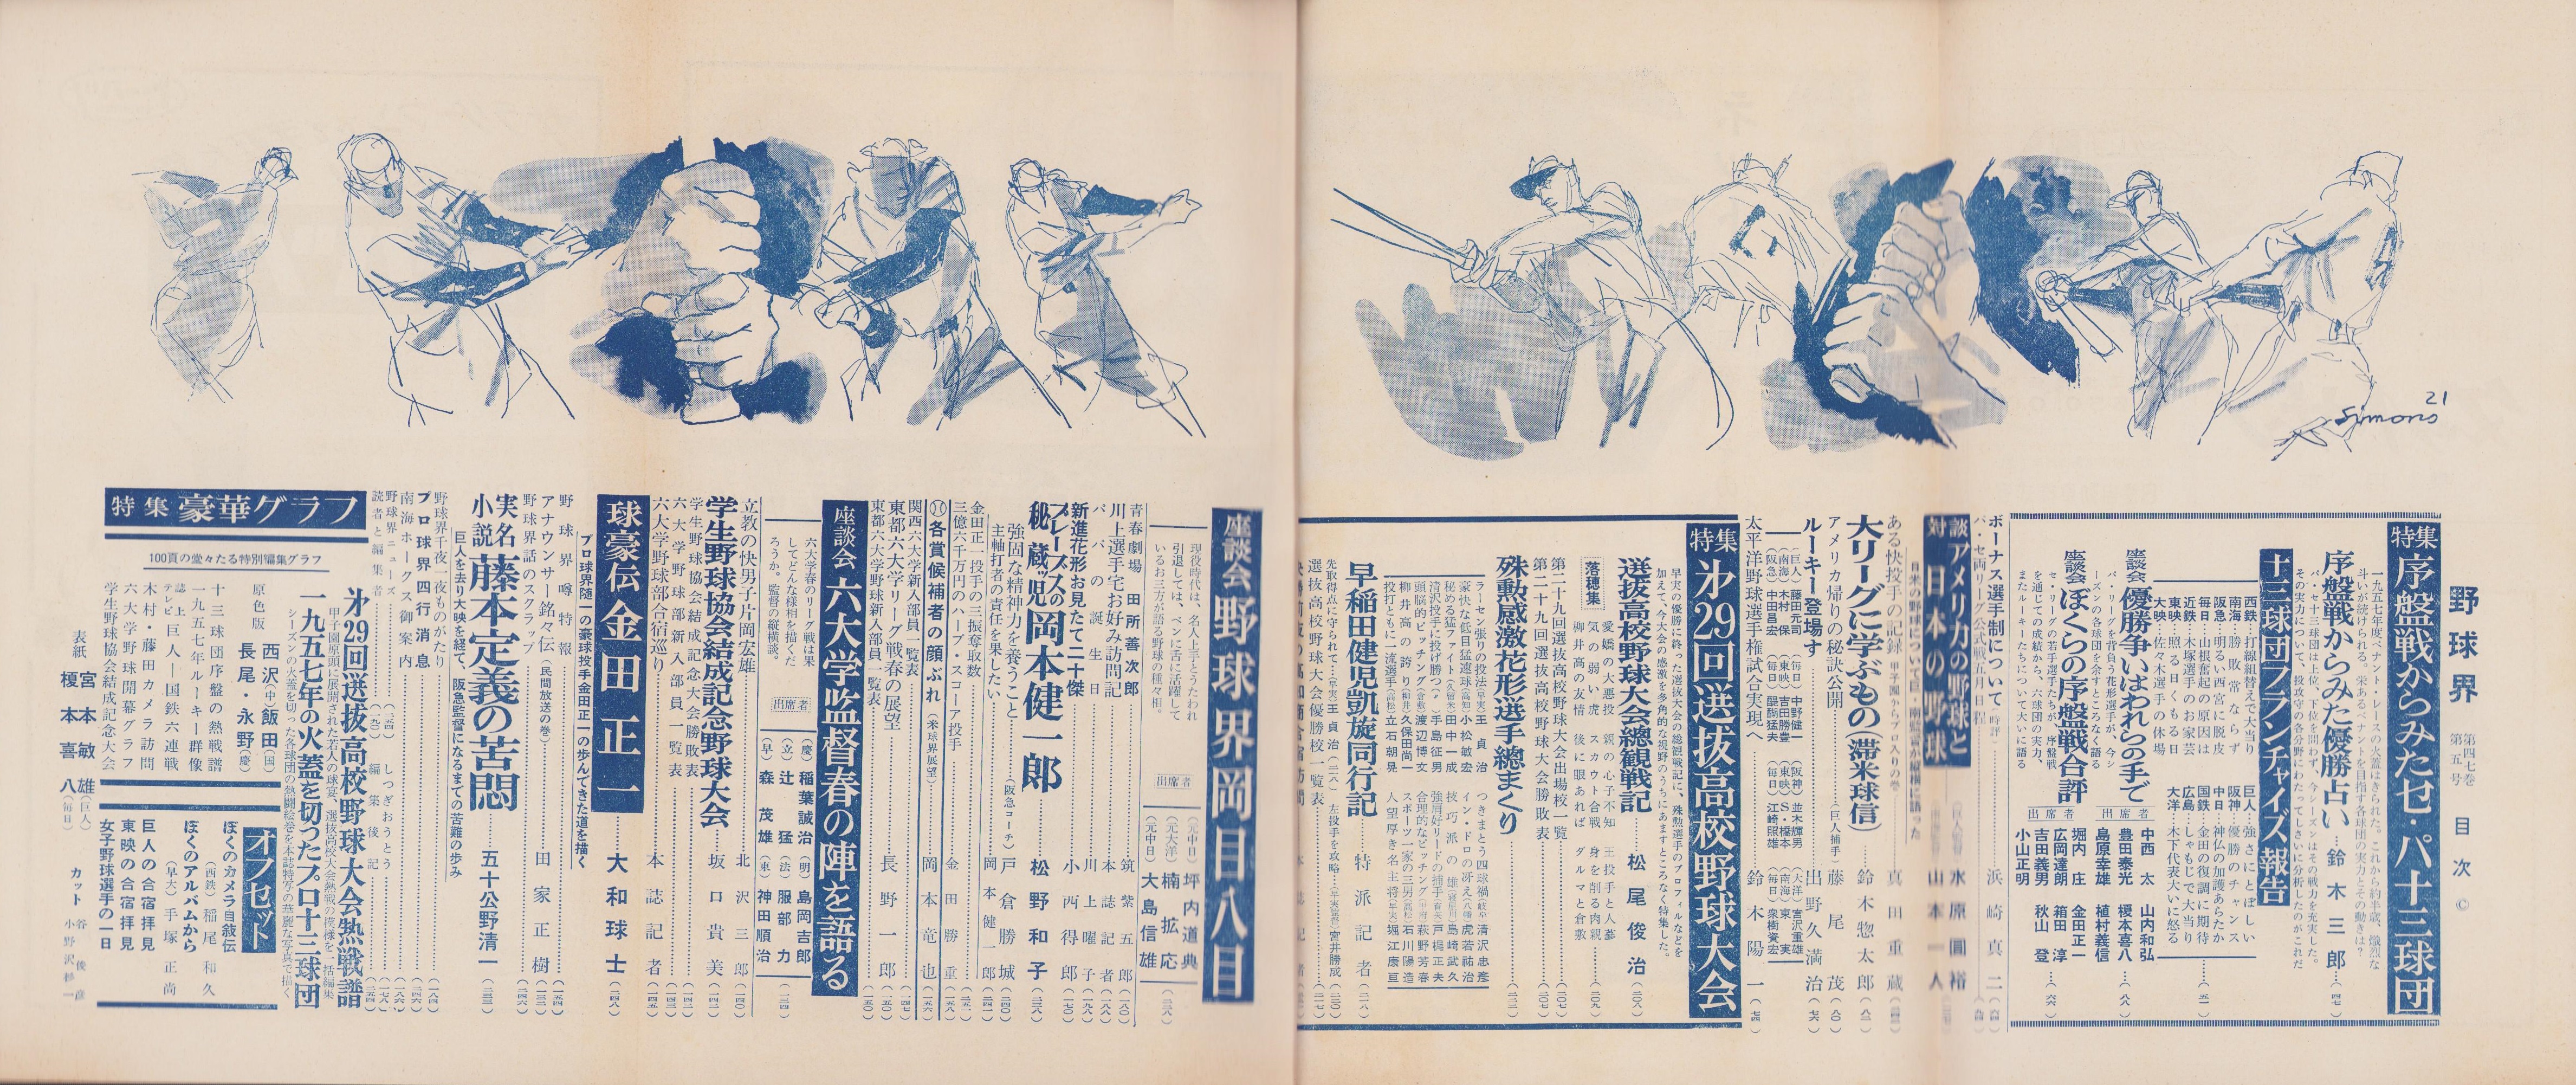 野球界
第四七巻
第五号
目次
©
21
Simons
特集 序盤戦からみたセ・パ十三球団
一九五七年度ペナント・レースの火蓋はきられた。これから約半歳、熾烈な
斗いが続けられる。栄あるペナントを目指す各球団の実力とその動きは？
序盤戦からみた優勝占い……鈴木三郎…(四七)
パ・セ十三球団は上位、下位を問わず、今シーズンはその戦力を充実した。
その実力について、投攻守の各分野にわたってしさいに分析したのがこれだ
十三球団フランチャイズ報告
西鉄…打線組替えで大当り
南海…勝て常ならず
阪急…明るい西宮に脱皮
毎日…山根奮起の原因は
近鉄…木塚選手のお家芸
東映…照る日くもる日
大映…佐々木選手の休場
巨人…強さにとぼしい
阪神…優勝のチャンス
中日…神仏の加護あらたか
国鉄…金田の復調に期待
広島…しゃもじで大当り
大洋…木下代表大いに怒る
…(五一)
座談会 優勝争いはわれらの手で
パ・リーグを背負う花形選手が、今シ
ーズンの各球団を余すところなく語る
出席者
中西太 山内和弘
豊田泰光 榎本喜八
島原幸雄 植村義信
…(八八)
座談会 ぼくらの序盤戦合評
セ・リーグの若手選手たちが、序盤戦
を通しての成績から、六球団の実力、
またルーキーたちについて大いに語る
出席者
堀内庄 金田正一
広岡達朗 箱田淳
吉田義男 秋山登
小山正明
…(六六)
ボーナス選手制について(時評)……浜崎真二…(六四)
パ・セ両リーグ公式戦五月日程
対談 アメリカの野球と日本の野球
水原円裕
山本一人
ある快投手の記録(甲子園からプロ入りの巻)……真田重蔵
大リーグに学ぶもの(滞米球信)……鈴木惣太郎…(八二)
アメリカ帰りの秘訣公開……(巨人捕手)藤尾茂…(八〇)
ルーキー登場す……出野久満治…(七六)
(巨人)藤田元司 (毎日)中野健一 (阪神)並木輝男 (大洋)宮沢重雄
(南海)木村保 (東映)吉田勝豊 (東映)S・橋本 (南海)東実
(阪急)中田昌宏 (毎日)醍醐猛夫 (毎日)江崎照雄 (毎日)衆樹資宏
太平洋野球選手権試合実現へ……鈴木陽一…(七四)
特集 第29回選抜高校野球大会
早実の優勝に終った選抜大会の総観戦記に、殊勲選手のプロフィルなどを
加えて、今大会の感激を多角的な視野のうちにあますところなく特集した。
選抜高校野球大会総観戦記……松尾俊治…(二〇八)
落穂集
愛嬌の大悪投 親の心子不知 王投手と人蔘
気の弱い虎 スカウト合戦 身を削る肉親
柳井高の友情 後に眼あれば ダルマと倉敷
…(二〇九)
第二十九回選抜高校野球大会出場校一覧…(二〇七)
第二十九回選抜高校野球大会勝敗表…(二〇七)
殊勲感激花形選手総まくり…(二二二)
ラーセン張りの投法(早実)王貞治
豪快な低目猛速球(高知)小松敏宏
秘める猛ファイト(久留米)田中一成
清沢投手に投げ勝つ 手島征男
頭脳的ピッチング(倉敷)渡辺博文
柳井高の誇り(柳井)久保田尚一
投打ともに一流選手(高松)立石朝晃
つきまとう四球禍(岐阜)清沢忠彦
イン・ドロの冴え(八幡)虎若祐治
技巧派の雄(寝屋川)島崎武久
強肩好リードの捕手 戸堀正夫
合理的なピッチング(甲府)萩野芳春
スポーツ一家の三男(高松)石川陽造
人望厚き名主将(早実)堀江康亘
早稲田健児凱旋同行記……特派記者…(二一八)
先取得点に守られて(早実)王貞治(二一八) 左投手を攻略…(早実監督)宮井勝成…(二二〇)
選抜高校野球大会優勝校一覧表…(二一七)
座談会 野球界岡目八目
現役時代は、名人上手とうたわれ
引退しては、ペンに舌に活躍して
いるお三方が語る野球の種々相。
出席者
(元中日)坪内道典
(元大洋)楠拡応
(元中日)大島信雄
…(二二八)
青春劇場 田所善次郎……筑紫五郎…(一八〇)
川上選手宅お好み訪問記……本誌記者…(一八八)
パパの誕生日……川上曜子…(一九九)
新進花形お見たて二十傑……小西得郎…(一七〇)
ブレーブスの秘蔵ッ児岡本健一郎……松野和子…(二二八)
強固な精神力を養うこと……(阪急コーチ)戸倉勝城…(二四〇)
主軸打者の責任を果したい……岡本健一郎…(二四一)
金田正一投手の三振奪取数…(二五一)
三億六千万円のハーブ・スコーア投手……金田勝重…(一五八)
各賞候補者の顔ぶれ(米球界展望)……岡本竜也…(一五六)
関西六大学新入部員一覧表…(一四七)
東都六大学リーグ戦春の展望……長野一郎…(一五〇)
東都六大学野球新入部員一覧表…(一五〇)
座談会 六大学監督春の陣を語る
六大学春のリーグ戦は果
してどんな様相を描くだ
ろうか。監督の縦横談。
出席者
(慶)稲葉誠治 (明)島岡吉郎
(立)辻猛 (法)服部力
(早)森茂雄 (東)神田順治
…(一三四)
立教の快男子片岡宏雄……北沢三郎…(一四〇)
学生野球協会結成記念野球大会……坂口貴美…(一四二)
学生野球協会結成記念大会勝敗表…(一四二)
六大学野球部新入部員一覧表…(一四四)
六大学野球部合宿巡り……本誌記者…(一四五)
球豪伝 金田正一……大和球士…(二四八)
プロ球界随一の豪球投手金田正一の歩んできた道を描く
野球界噂特報…(一五四)
アナウンサー銘々伝(民間放送の巻)……田家正樹…(一三二)
野球界話のスクラップ…(二四六)
実名小説 藤本定義の苦悶……五十公野清一…(二三二)
巨人を去り大映を経て、阪急監督になるまでの苦難の歩み
野球界千夜一夜ものがたり…(一八四)
プロ球界四行消息…(二四六)
南海ホークス御案内…(一八六)
野球界ニュース…(一五四) しつぎおうとう…(一七八)
読者と編集者…(一九〇) 編集後記…(二五四)
特集 豪華グラフ
100頁の堂々たる特別編集グラフ
第29回選抜高校野球大会熱戦譜
甲子園原頭に展開された若人の球宴、選抜高校大会熱戦の模様を一括編集
一九五七年の火蓋を切ったプロ十三球団
シーズンの火蓋を切った各球団の熱闘絵巻を本誌特写の華麗な写真で描く
原色版
西沢(中) 飯田(国)
長尾・永野(慶)
十三球団序盤の熱戦譜
一九五七年ルーキー群像
誌上テレビ 巨人―国鉄六連戦
木村・藤田カメラ訪問
六大学野球開幕グラフ
学生野球協会結成記念大会
オフセット
ぼくのカメラ自叙伝
(西鉄)稲尾和久
ぼくのアルバムから
(早大)手塚正尚
巨人の合宿拝見
東映の合宿拝見
女子野球選手の一日
表紙
宮本敏雄(巨人)
榎本喜八(毎日)
カット
谷俊彦
小野沢修一